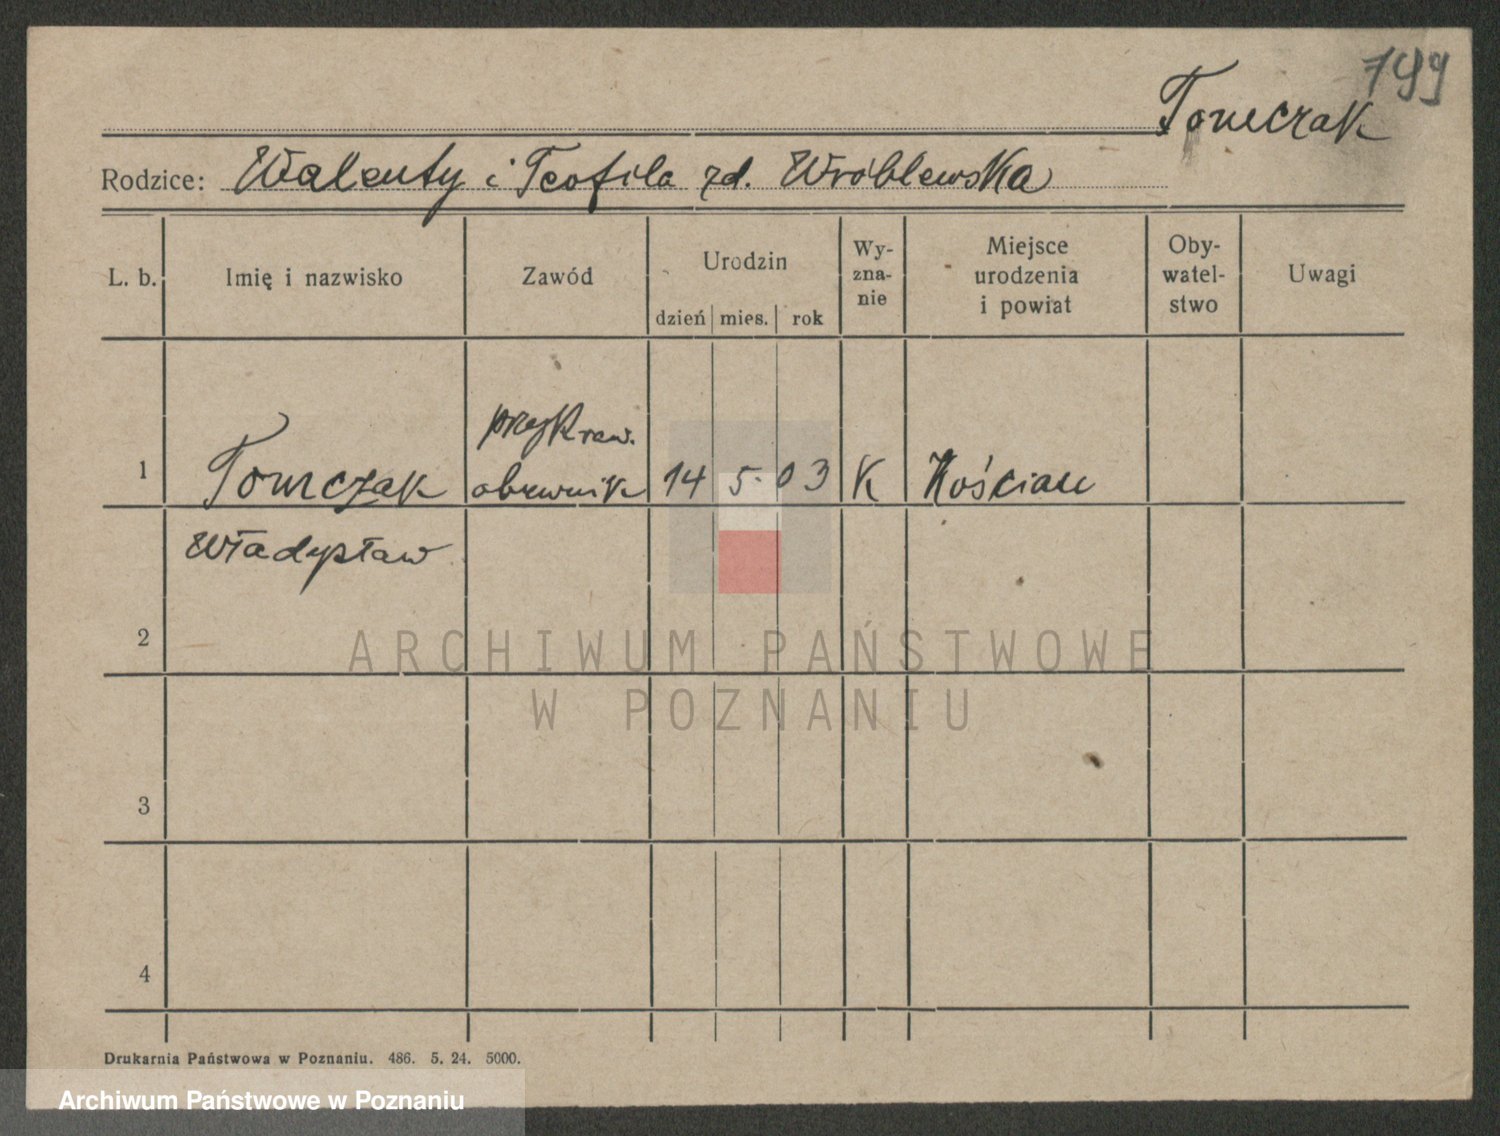 799
Tomczak
Rodzice: Walenty i Teofila zd. Wróblewska
L. b. Imię i nazwisko Zawód Urodzin dzień mies. rok Wy-zna-nie Miejsce urodzenia i powiat Oby-watel-stwo Uwagi
przykraw.
1 Tomczak 14 5. 03 K Kościan
Władysław
2
3
4
Drukarnia Państwowa w Poznaniu. 486. 5. 24. 5000.
ARCHIWUM PAŃSTWOWE
W POZNANIU
Archiwum Państwowe w Poznaniu